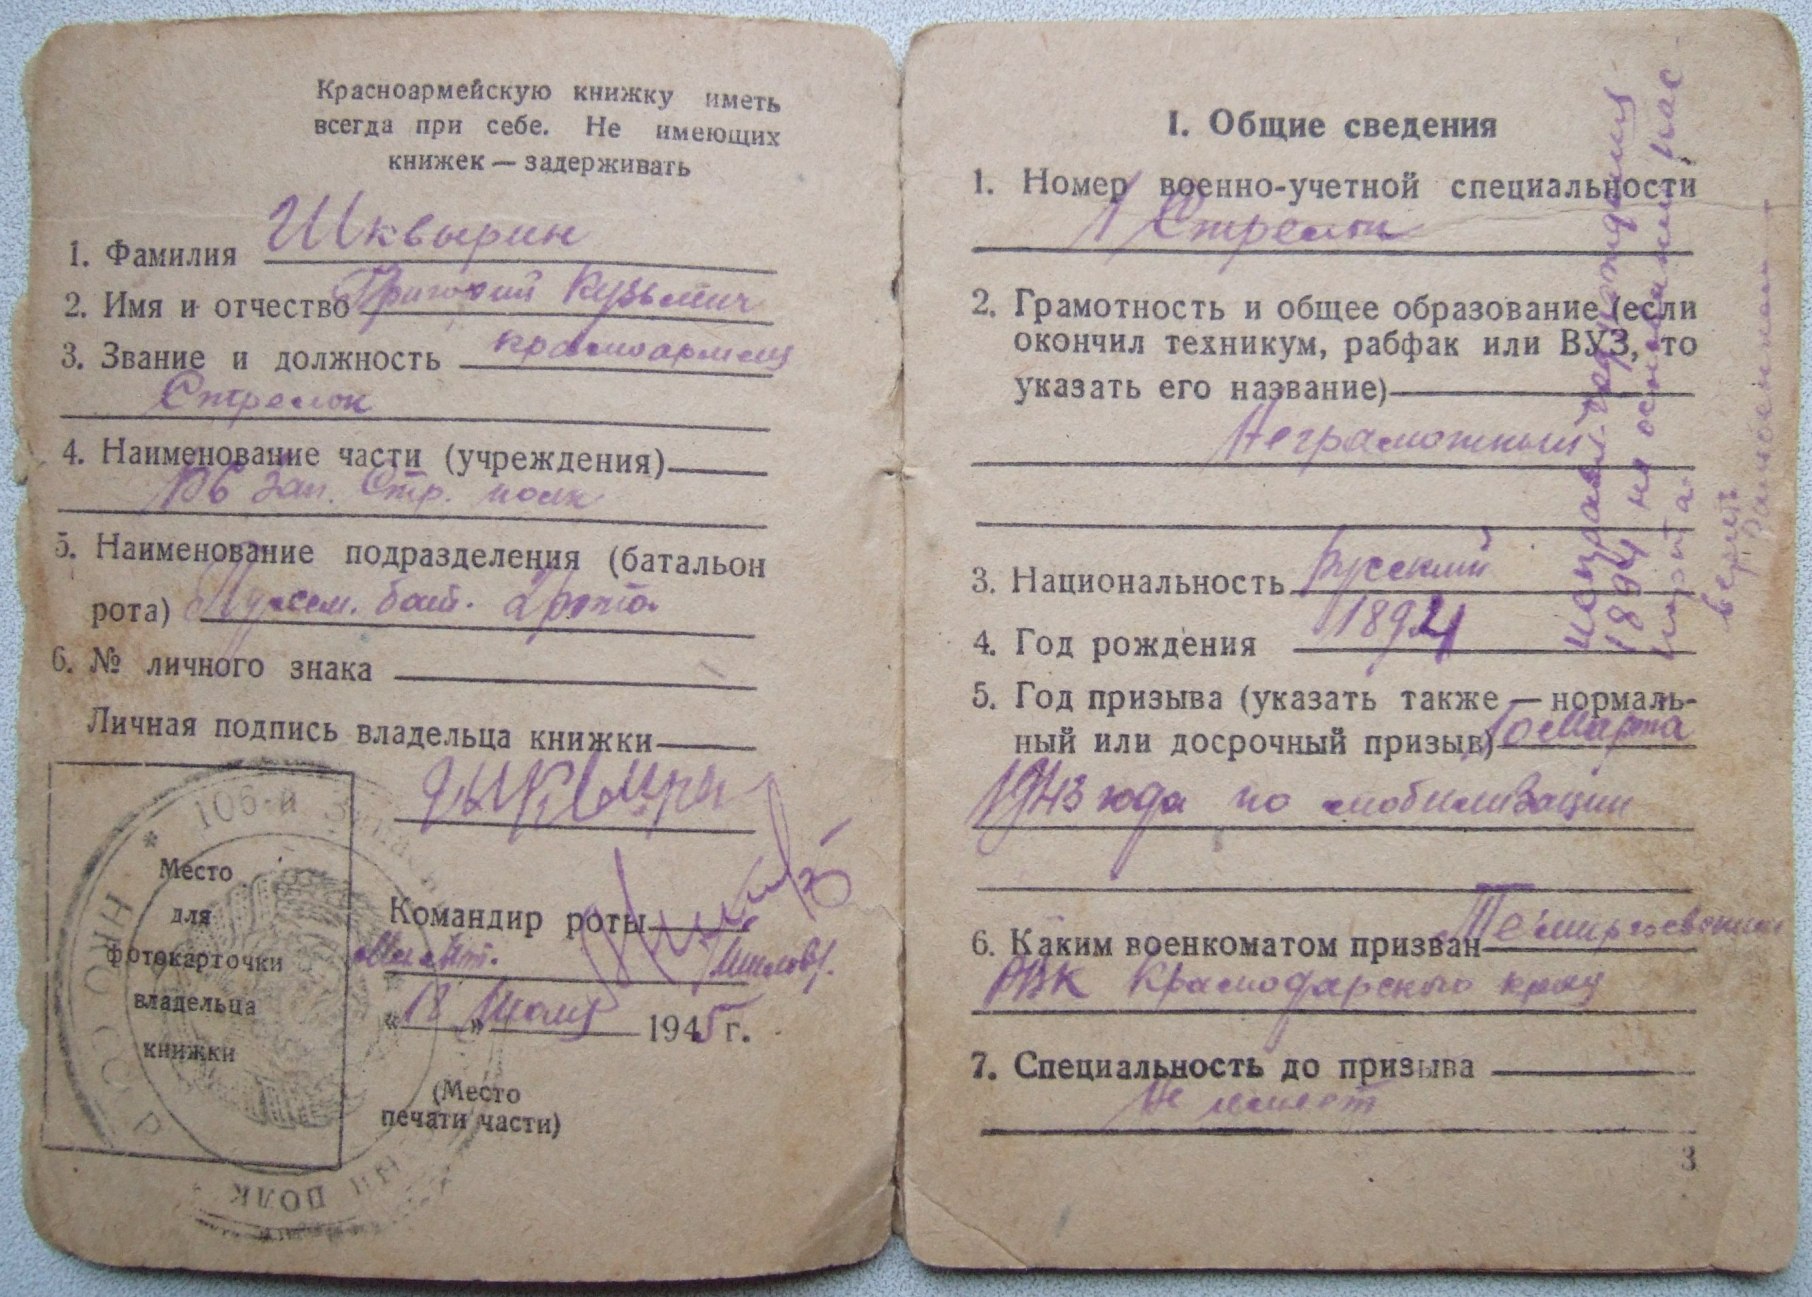 Красноармейскую книжку иметь
всегда при себе. Не имеющих
книжек — задерживать
1. Фамилия Шквырин
2. Имя и отчество Григорий Кузьмич
3. Звание и должность красноармеец
Стрелок
4. Наименование части (учреждения)
106 Зап. Стр. полк
5. Наименование подразделения (батальон
рота) бат. 2 рота
6. № личного знака
Личная подпись владельца книжки
Место
для
фотокарточки
владельца
книжки
* 106-й
НКО СССР
полк
Командир роты
«18» Июля 1945 г.
(Место
печати части)
I. Общие сведения
1. Номер военно-учетной специальности
1 Стрелок
2. Грамотность и общее образование (если
окончил техникум, рабфак или ВУЗ, то
указать его название)
Неграмотный
3. Национальность Русский
4. Год рождения 1894
5. Год призыва (указать также — нормаль-
ный или досрочный призыв) 10 Марта
1943 года по мобилизации
6. Каким военкоматом призван Темиргоевским
РВК Краснодарского края
7. Специальность до призыва
Не имеет
3
Исправл. год рождения
1894 на основании пас
порта.
верно